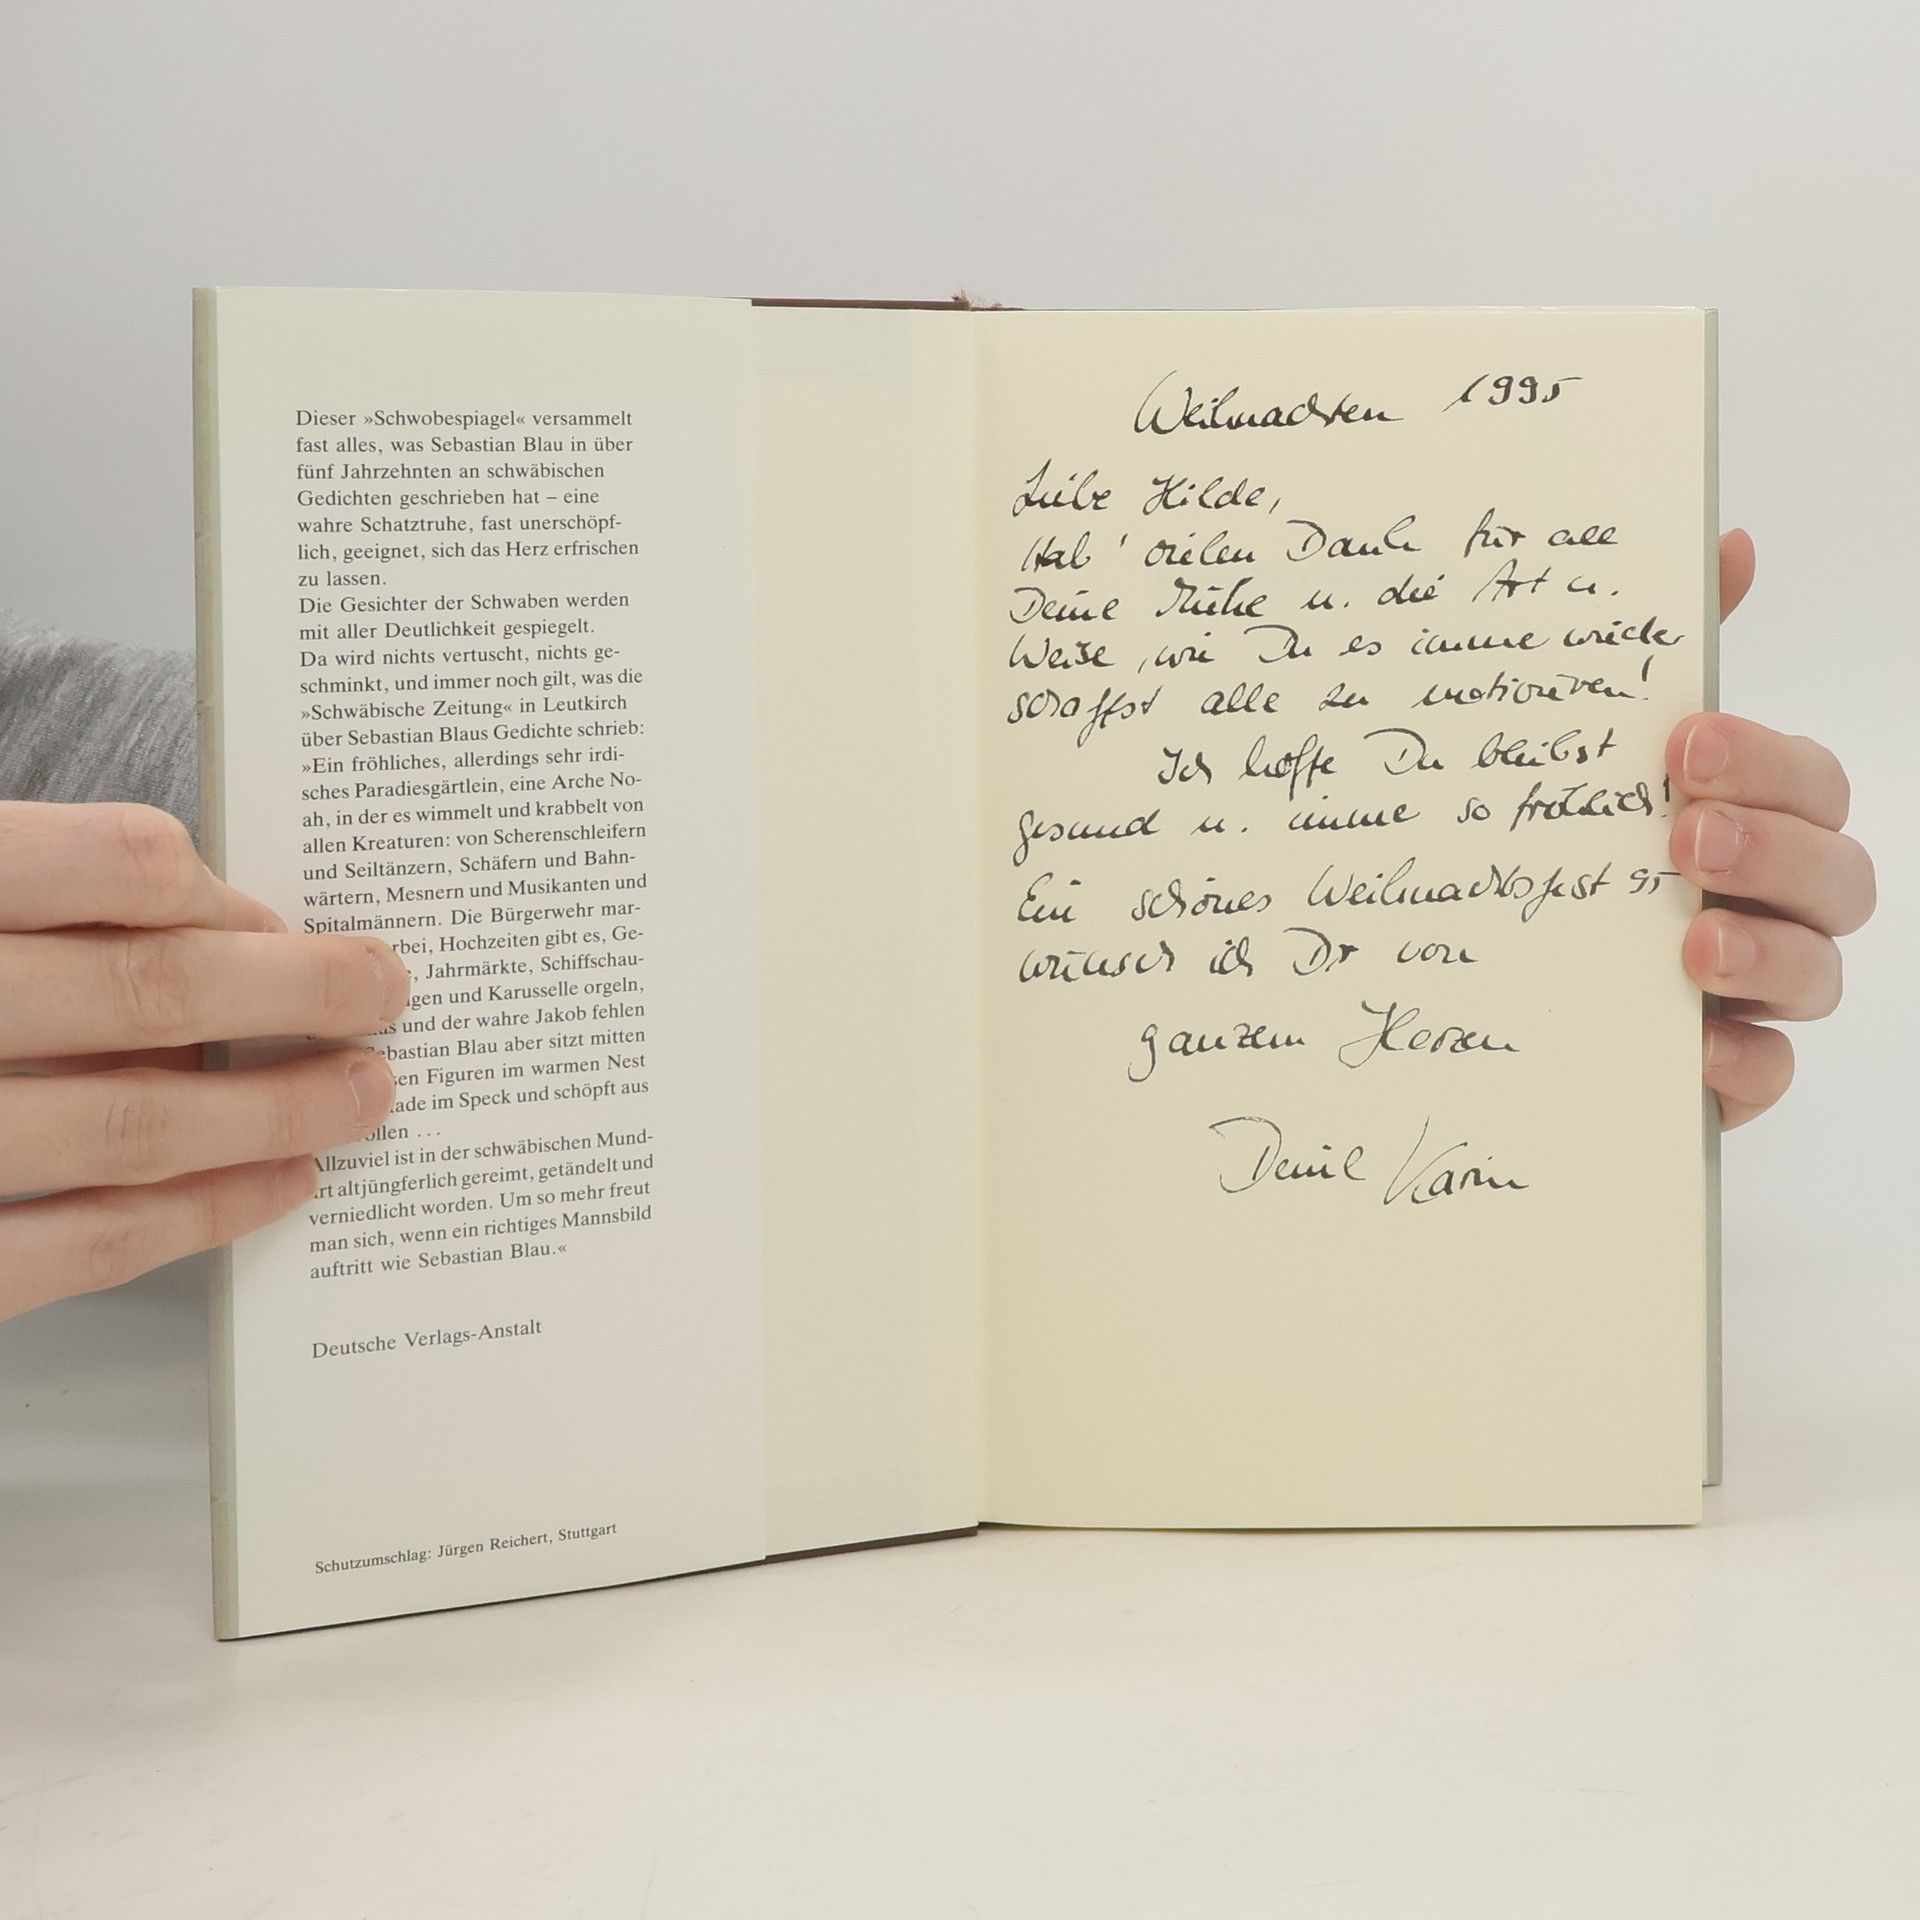 Dieser »Schwobespiagel« versammelt
fast alles, was Sebastian Blau in über
fünf Jahrzehnten an schwäbischen
Gedichten geschrieben hat – eine
wahre Schatztruhe, fast unerschöpf-
lich, geeignet, sich das Herz erfrischen
zu lassen.
Die Gesichter der Schwaben werden
mit aller Deutlichkeit gespiegelt.
Da wird nichts vertuscht, nichts ge-
schminkt, und immer noch gilt, was die
»Schwäbische Zeitung« in Leutkirch
über Sebastian Blaus Gedichte schrieb:
»Ein fröhliches, allerdings sehr irdi-
sches Paradiesgärtlein, eine Arche No-
ah, in der es wimmelt und krabbelt von
allen Kreaturen: von Scherenschleifern
und Seiltänzern, Schäfern und Bahn-
wärtern, Mesnern und Musikanten und
Spitalmännern. Die Bürgerwehr mar-
rbei, Hochzeiten gibt es, Ge-
, Jahrmärkte, Schiffschau-
gen und Karusselle orgeln,
und der wahre Jakob fehlen
ebastian Blau aber sitzt mitten
sen Figuren im warmen Nest
ade im Speck und schöpft aus
ollen ...
Allzuviel ist in der schwäbischen Mund-
rt altjüngferlich gereimt, getändelt und
verniedlicht worden. Um so mehr freut
man sich, wenn ein richtiges Mannsbild
auftritt wie Sebastian Blau.«
Deutsche Verlags-Anstalt
Schutzumschlag: Jürgen Reichert, Stuttgart
Weihnachten 1995
Liebe Hilde,
Hab' vielen Dank für all
Deine Mühe u. die Art u.
Weise, wie Du es immer wieder
schaffst alle zu motivieren!
Ich hoffe Du bleibst
gesund u. immer so fröhlich!
Ein schönes Weihnachtsfest 95
wünsch ich Dir von
ganzem Herzen
Deine Karin